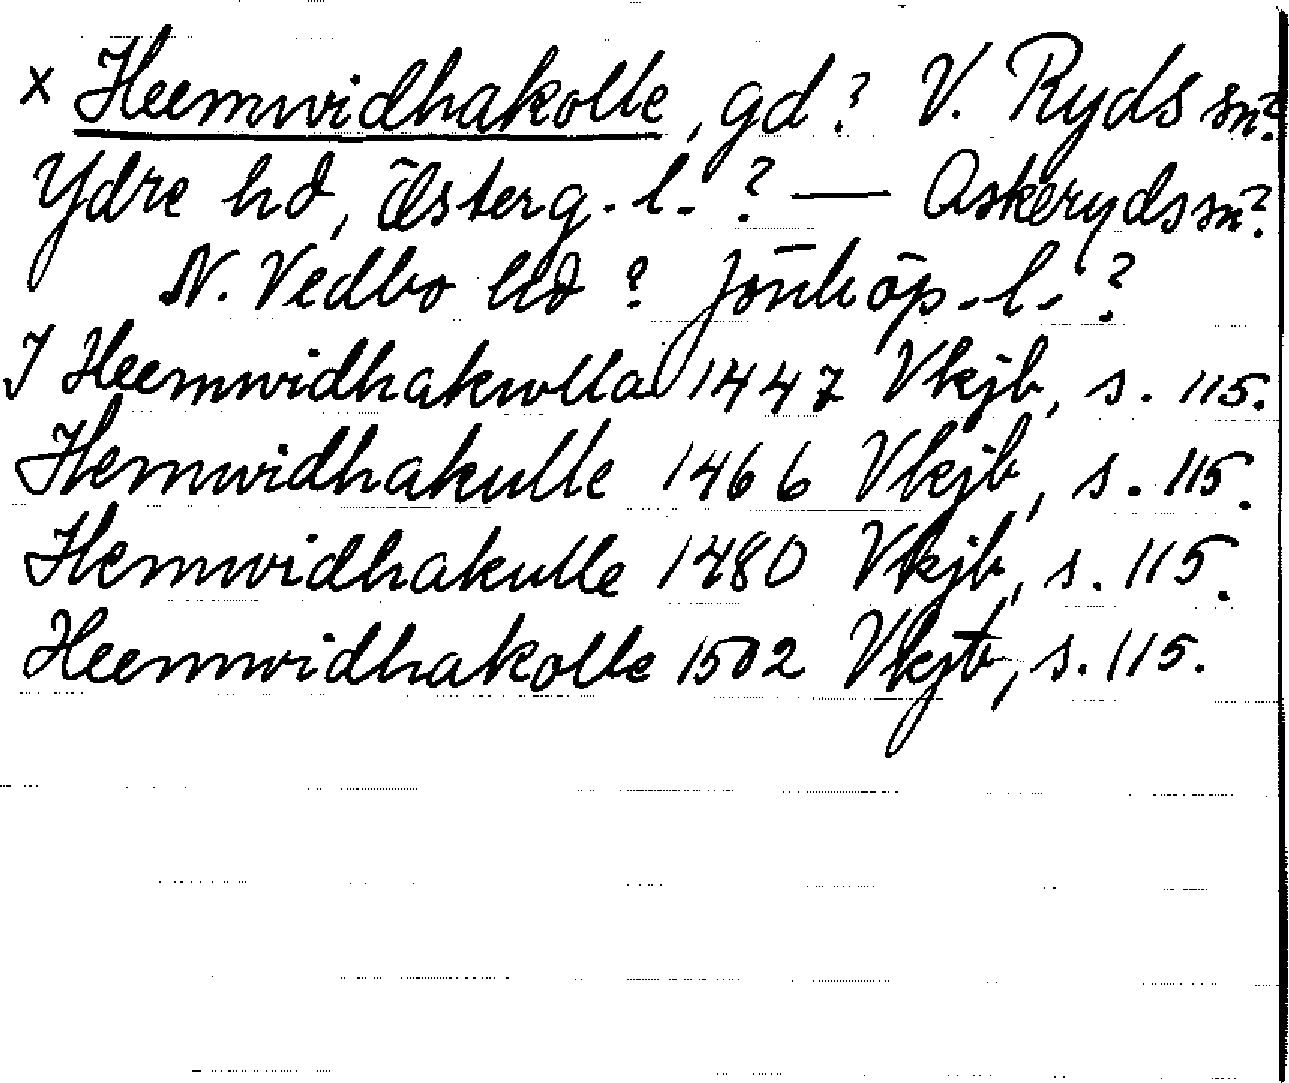 x Heemwidhakolle, gd? V. Ryds sn?
Ydre hd, Österg. l. ? — Askeryds sn?
N. Vedbo hd ? Jönköp. l. ?
I Heemwidhakwlla 1447 Vkjb, s. 115.
Hemwidhakulle 1466 Vkjb, s. 115.
Hemwidhakulle 1480 Vkjb, s. 115.
Heemwidhakolle 1502 Vkjb, s. 115.